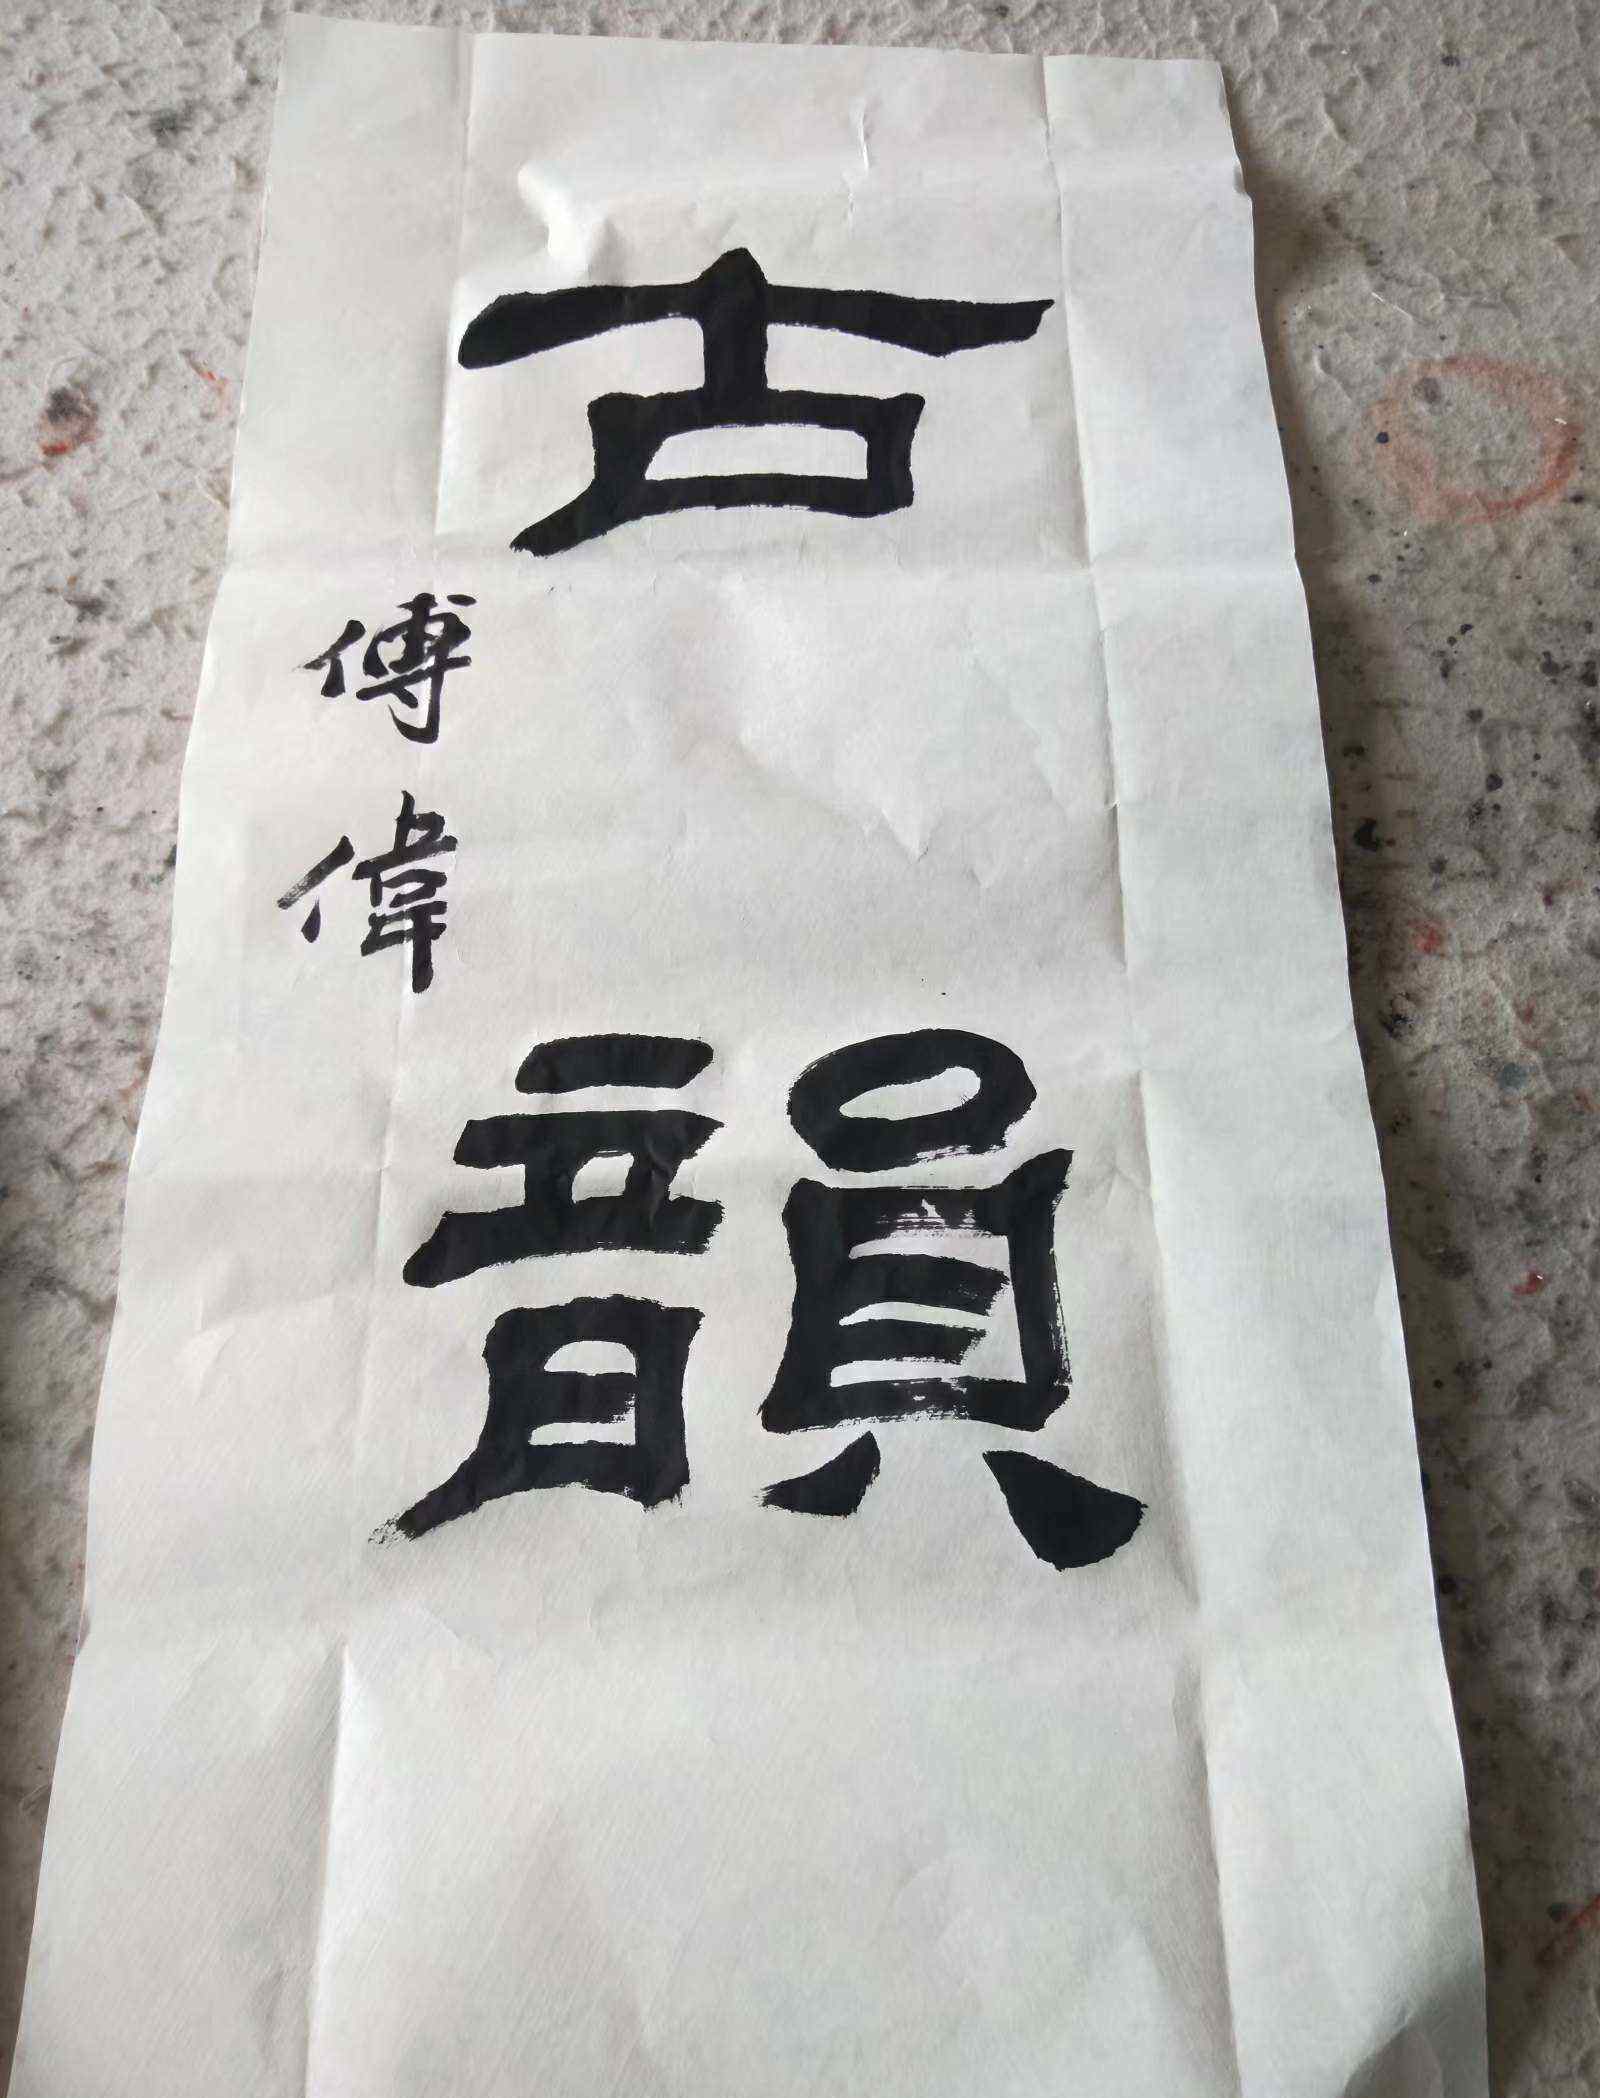 古韻
傅偉